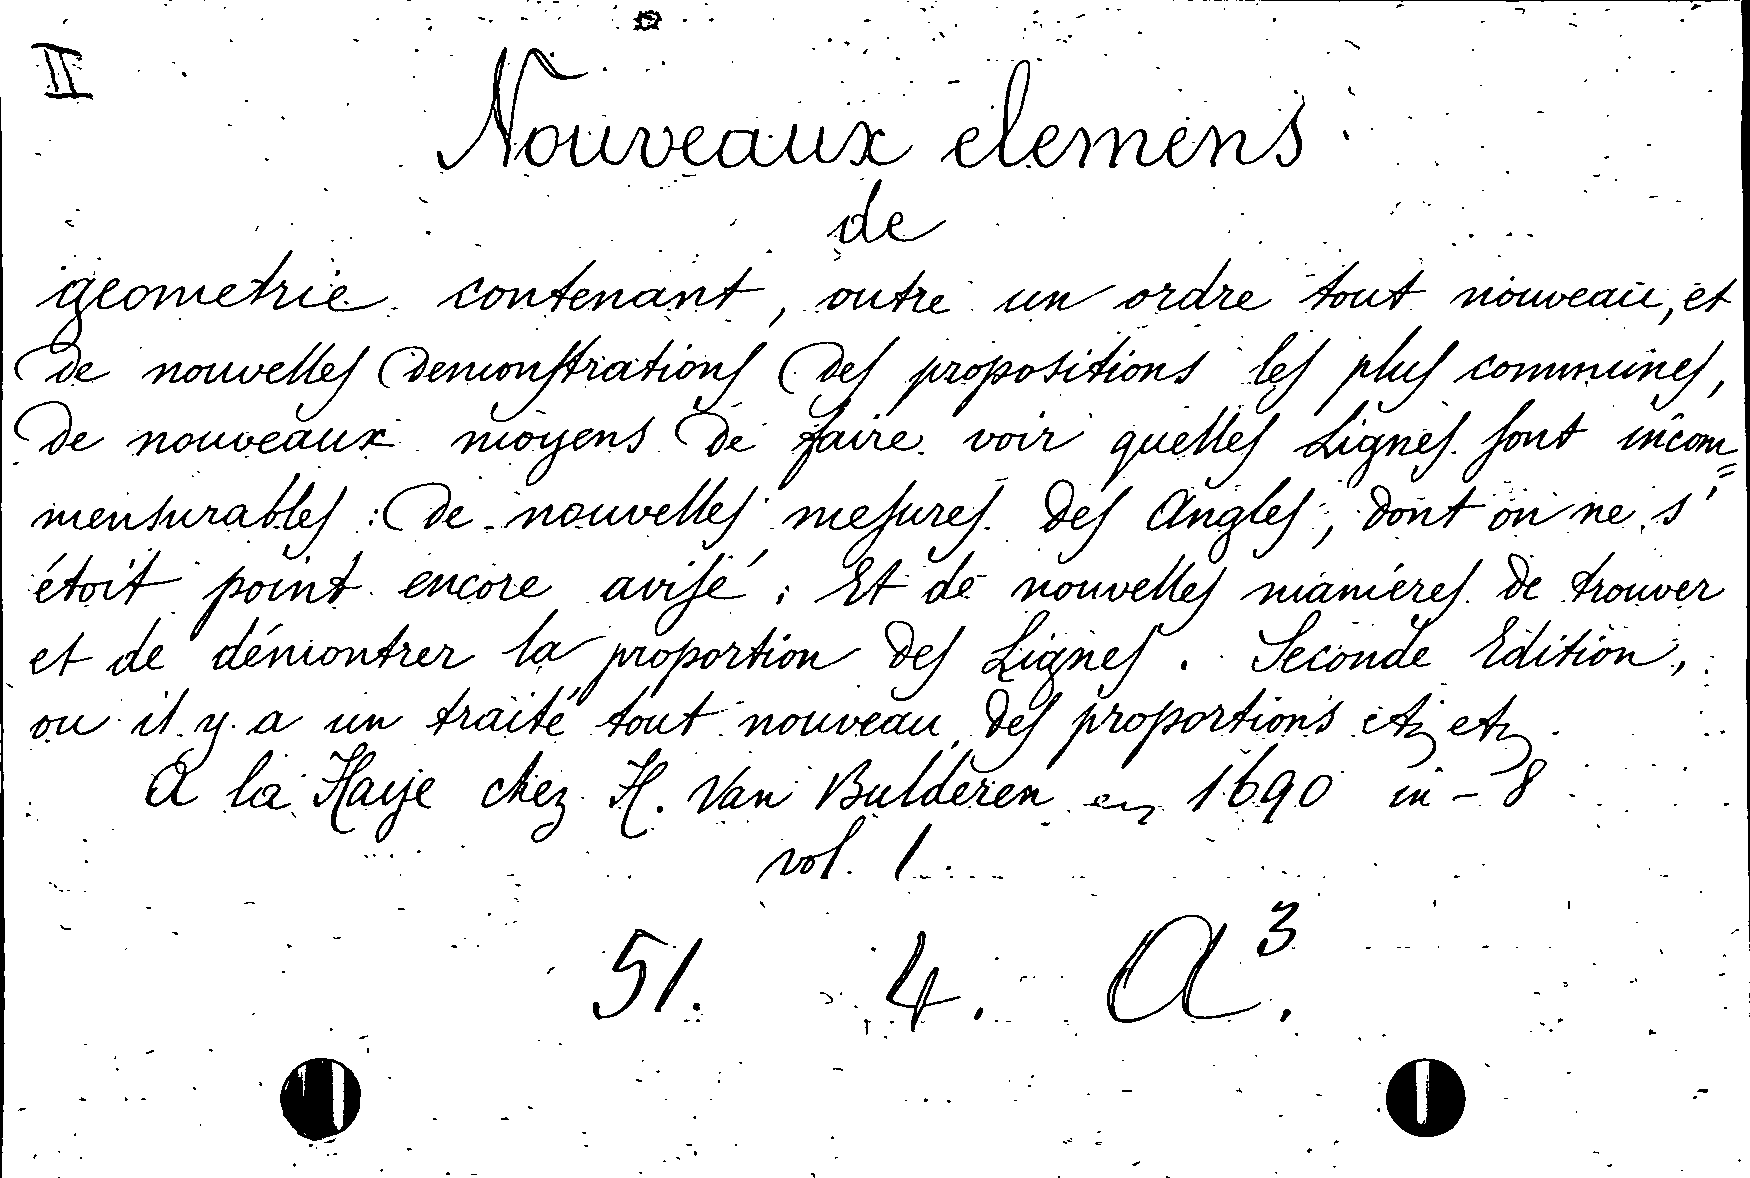 II
Nouveaux elemens
de
geometrie contenant, outre un ordre tout nouveau, et
de nouvelles demonstrations des propositions les plus communes,
de nouveaux moyens de faire voir quelles Lignes sont incom=
mensurables : de nouvelles mesures des Angles, dont on ne s'
étoit point encore avisé : Et de nouvelles maniéres de trouver
et de démontrer la proportion des Lignes. Seconde Edition,
ou il y a un traité tout nouveau des proportions etc etc.
A la Haye chez H. Van Bulderen en 1690 in - 8
vol. 1.
51. 4. A³.